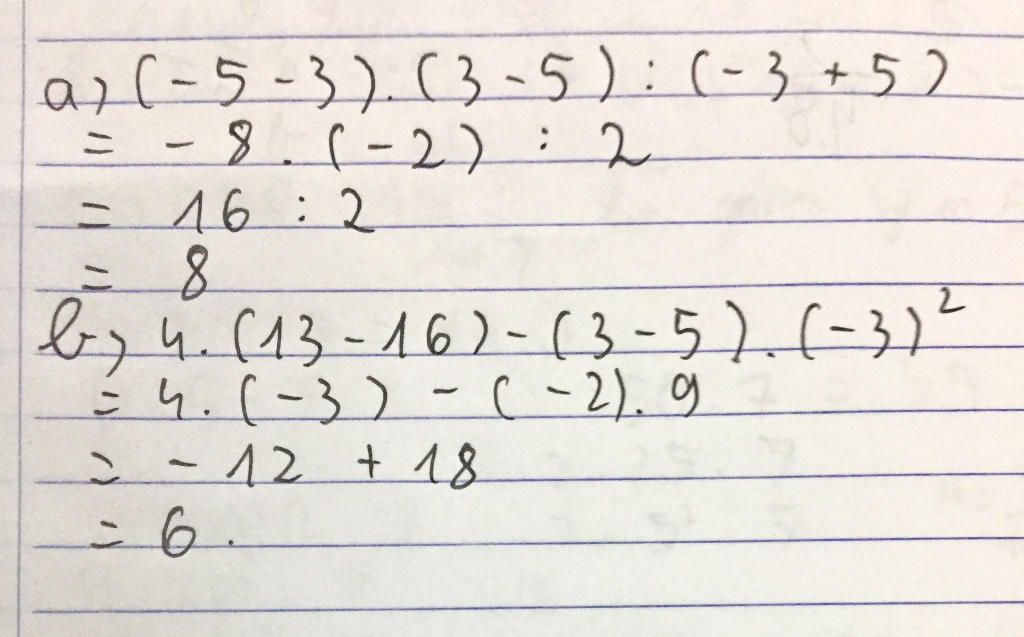 a) (-5-3).(3-5):(-3+5)
= -8.(-2) : 2
= 16 : 2
= 8
b) 4.(13-16)-(3-5).(-3)²
= 4.(-3) - (-2).9
= -12 + 18
= 6.